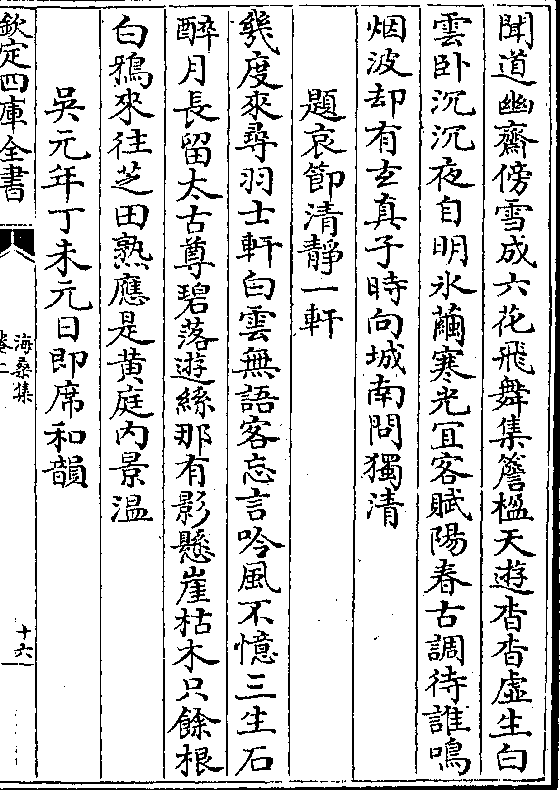 聞道幽齋傍雪成六花飛舞集簷楹天遊杳杳虛生白
雲卧沉沉夜自明氷繭寒光宜客賦陽春古調待誰鳴
烟波却有玄真子時向城南問獨清
題哀節清靜一軒
幾度來尋羽士軒白雲無語客忘言吟風不憶三生石
醉月長留太古尊碧落遊絲那有影懸崖枯木只餘根
白鵶來往芝田熟應是黄庭内景温
吳元年丁未元日即席和韻
欽定四庫全書
海桑集
卷二
十六